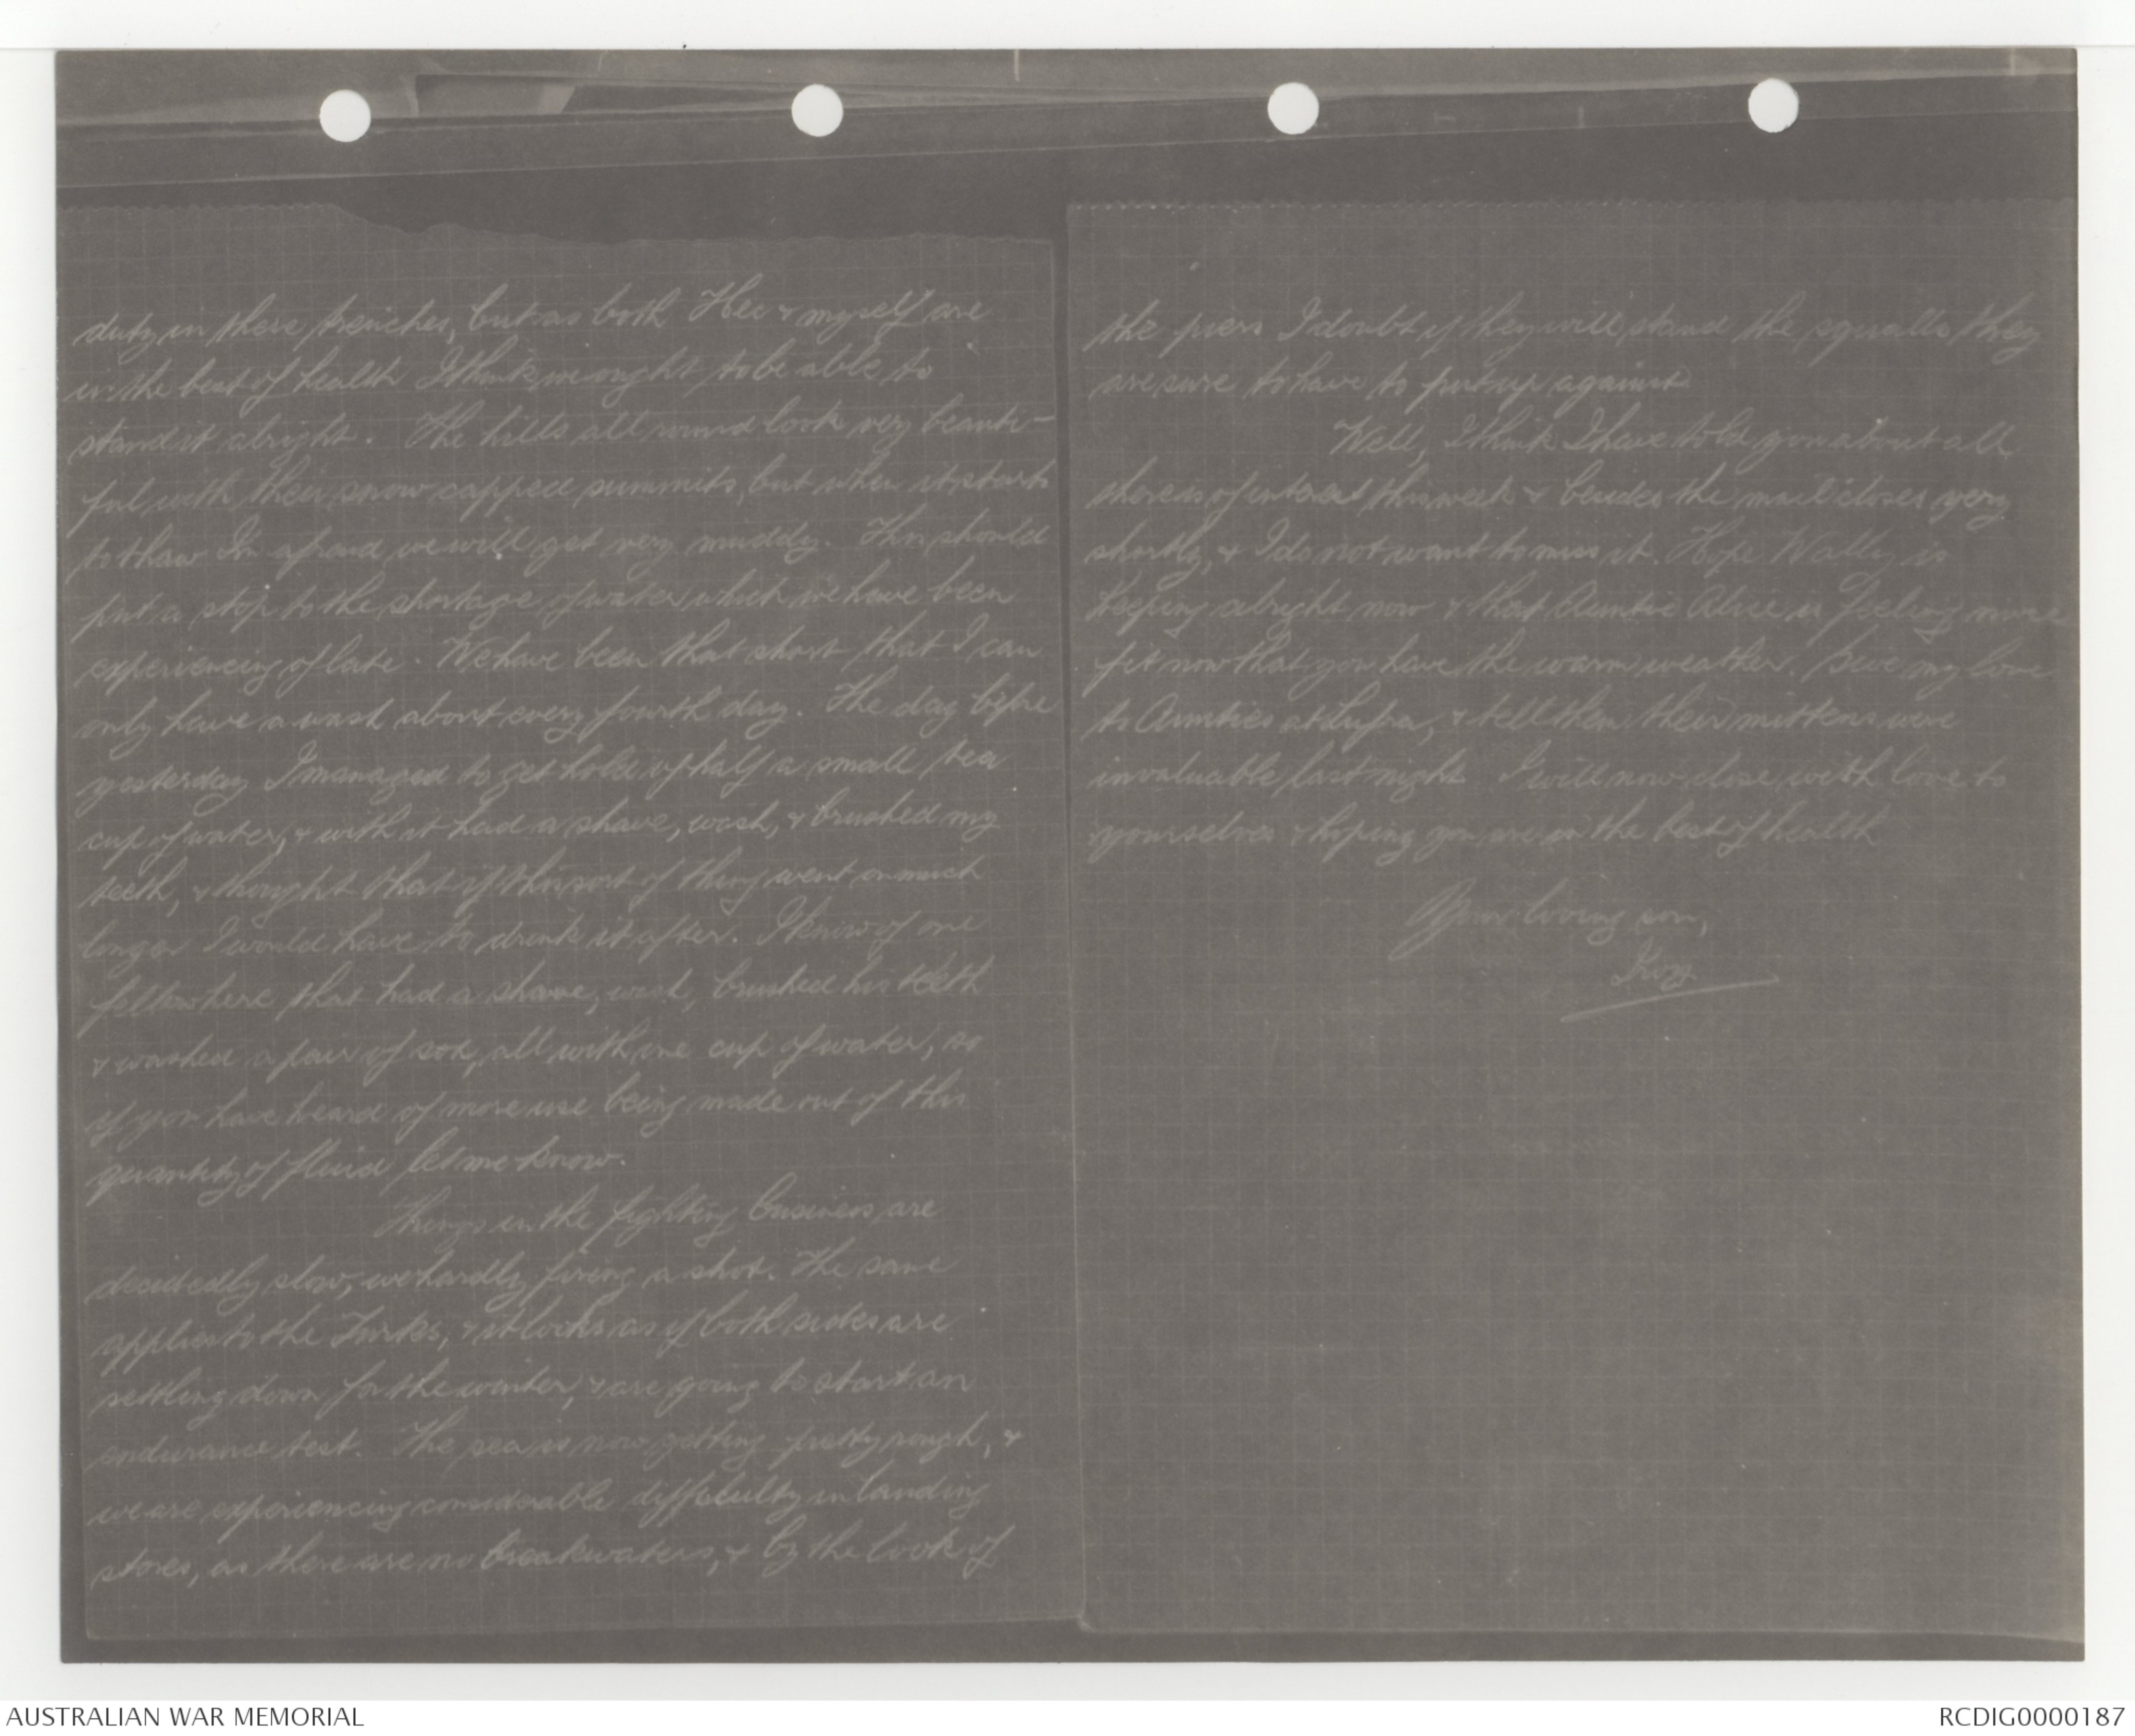 duty in these trenches, but as both Hec & myself are
in the best of health I think we ought to be able to
stand it alright. The hills all round look very beauti-
ful with their snow capped summits, but when it starts
to thaw Im afraid we will get very muddy. This should
put a stop to the shortage of water which we have been
experiencing of late. We have been that short that I can
only have a wash about every fourth day. The day before
yesterday I managed to get hold of half a small tea
cup of water, & with it had a shave, wash, & brushed my
teeth, & thought that if this sort of thing went on much
longer I would have to drink it after. I know of one
fellow here that had a shave, wash, brushed his teeth
& washed a pair of sox, all with one cup of water, so
if you have heard of more use being made out of this
quantity of fluid let me know.
Things in the fighting business are
decidedly slow, we hardly firing a shot. The same
applies to the Turks, & it looks as if both sides are
settling down for the winter, & are going to start an
endurance test. The sea is now getting pretty rough, &
we are experiencing considerable difficulty in landing
stores, as there are no breakwaters, & by the look of
the piers I doubt if they will stand the squalls they
are sure to have to put up against.
Well, I think I have told you about all
there is of interest this week & besides the mail closes very
shortly, & I do not want to miss it. Hope Wally is
keeping alright now & that Auntie Alice is feeling more
fit now that you have the warm weather. Give my love
to Aunties at Lufra, & tell them their mittens were
invaluable last night. I will now close with love to
yourselves & hoping you are in the best of health
Your loving son,
AUSTRALIAN WAR MEMORIAL
RCDIG0000187